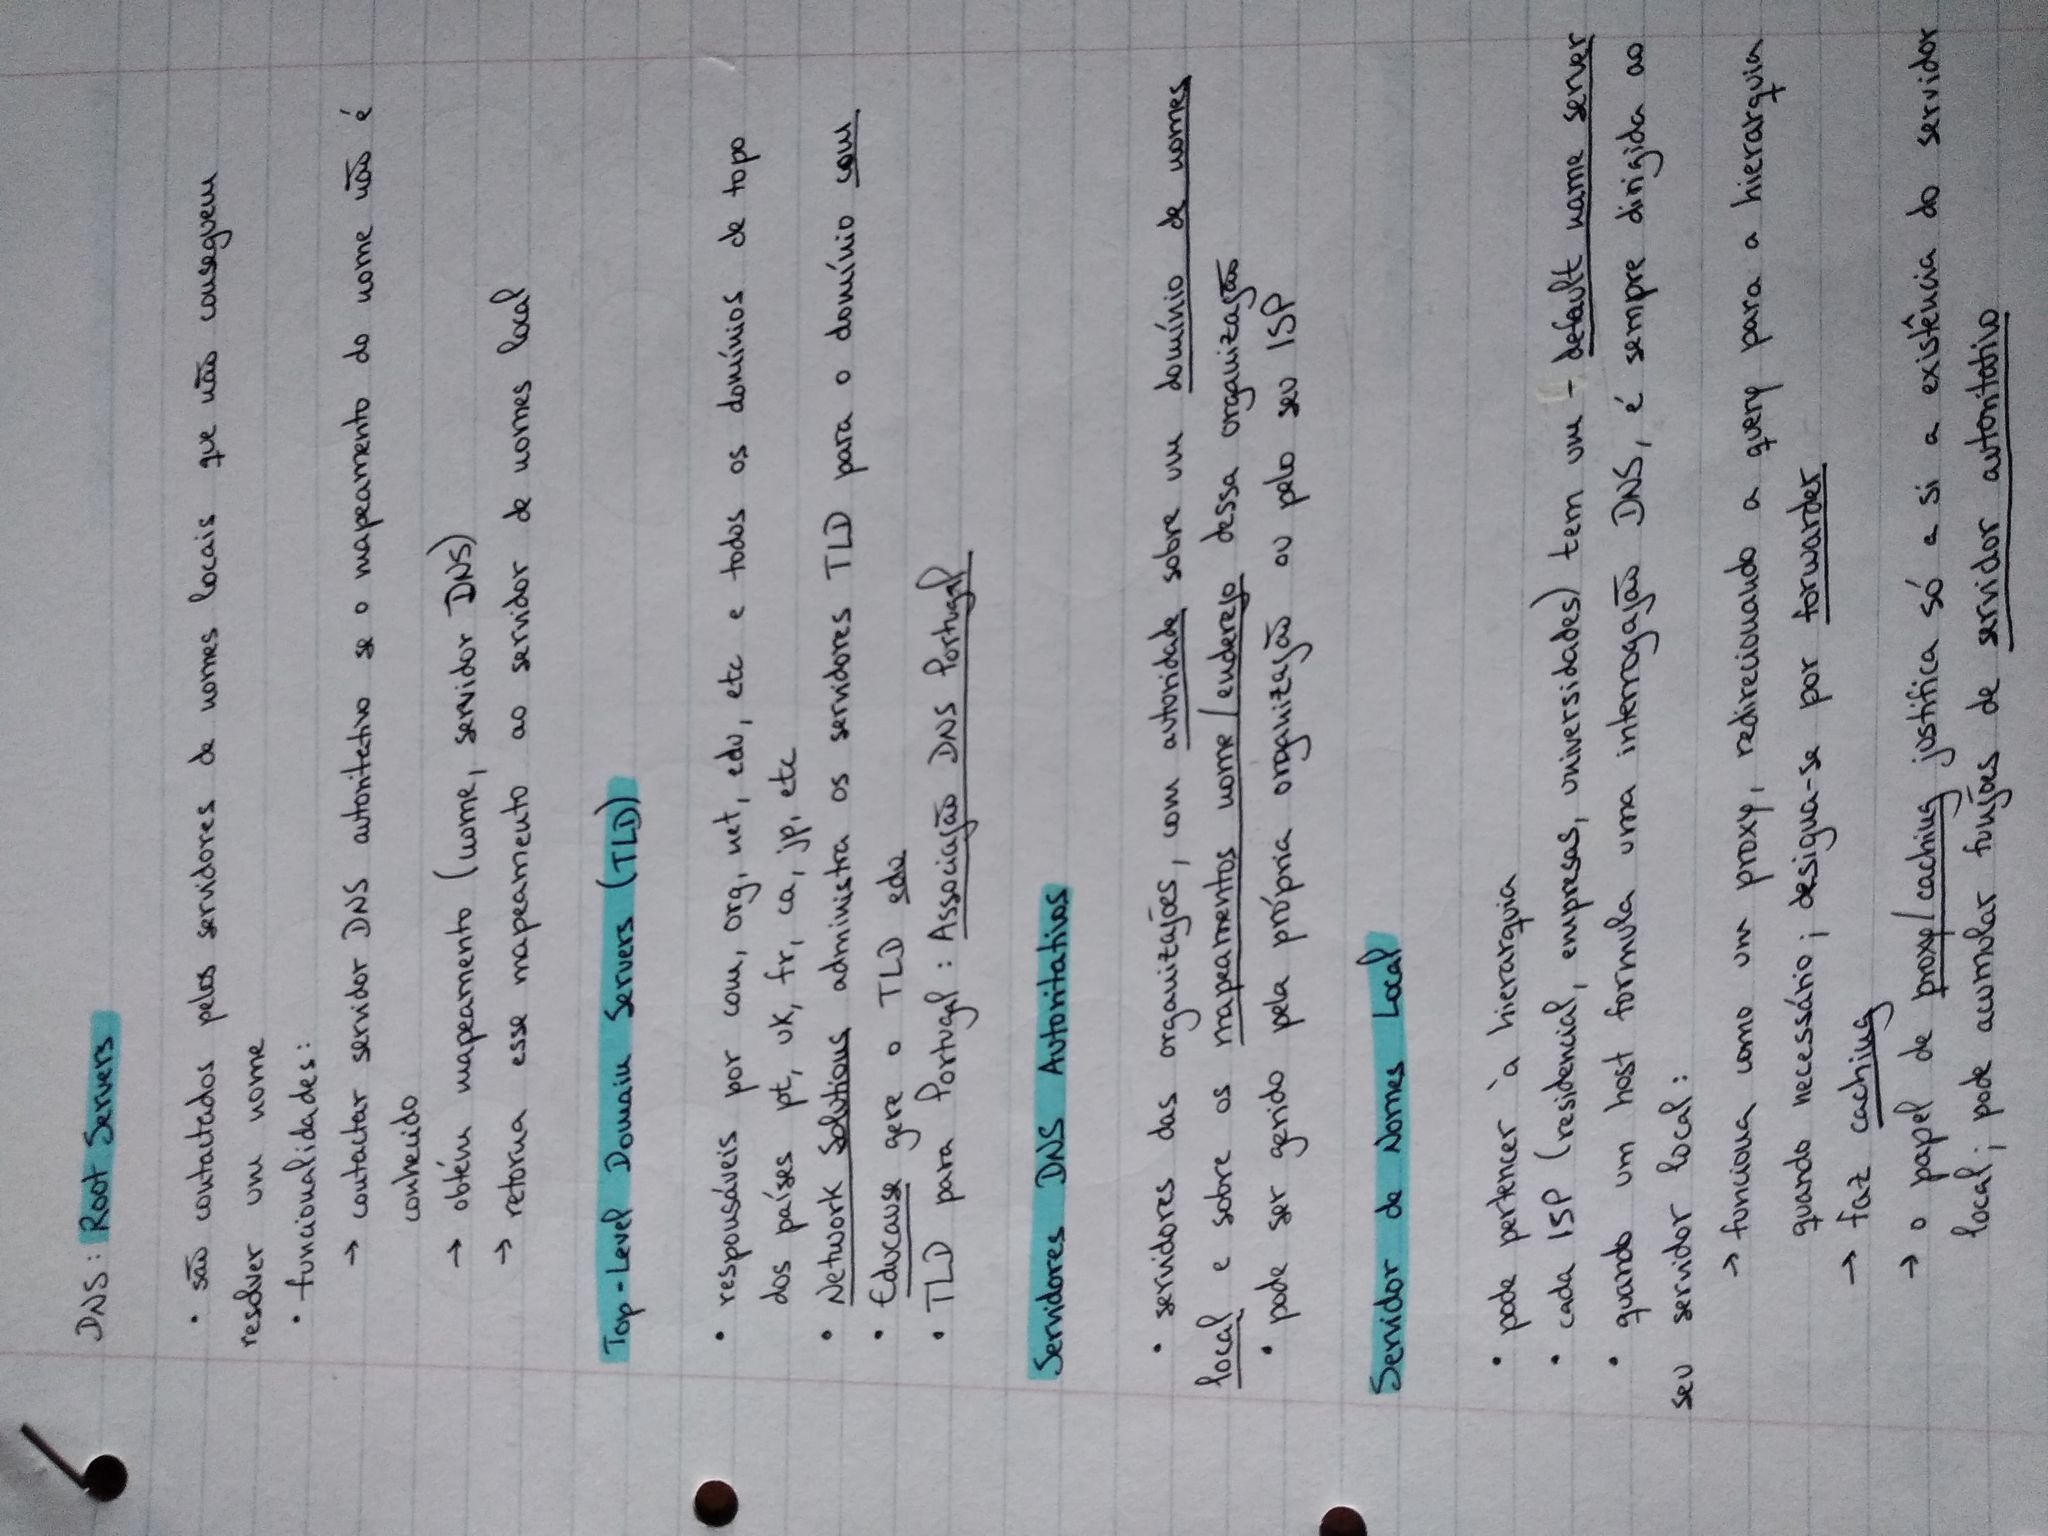 DNS: Root Servers
• são contactados pelos servidores de nomes locais que não conseguem
resolver um nome
• funcionalidades:
→ contactar servidor DNS autoritativo se o mapeamento do nome não é
conhecido
→ obtém mapeamento (nome, servidor DNS)
→ retorna esse mapeamento ao servidor de nomes local
Top-Level Domain Servers (TLD)
• responsáveis por com, org, net, edu, etc e todos os domínios de topo
dos países pt, uk, fr, ca, jp, etc
• Network Solutions administra os servidores TLD para o domínio com
• Educause gere o TLD edu
• TLD para Portugal: Associação DNS Portugal
Servidores DNS Autoritativos
• servidores das organizações, com autoridade sobre um domínio de nomes
local e sobre os mapeamentos nome/endereço dessa organização
• pode ser gerido pela própria organização ou pelo seu ISP
Servidor de Nomes Local
• pode pertencer à hierarquia
• cada ISP (residencial, empresas, universidades) tem um - default name server
• quando um host formula uma interrogação DNS, é sempre dirigida ao
seu servidor local:
→ funciona como um proxy, redirecionando a query para a hierarquia
quando necessário; designa-se por forwarder
→ faz caching
→ o papel de proxy/caching justifica só a si a existência do servidor
local; pode acumular funções de servidor autoritativo